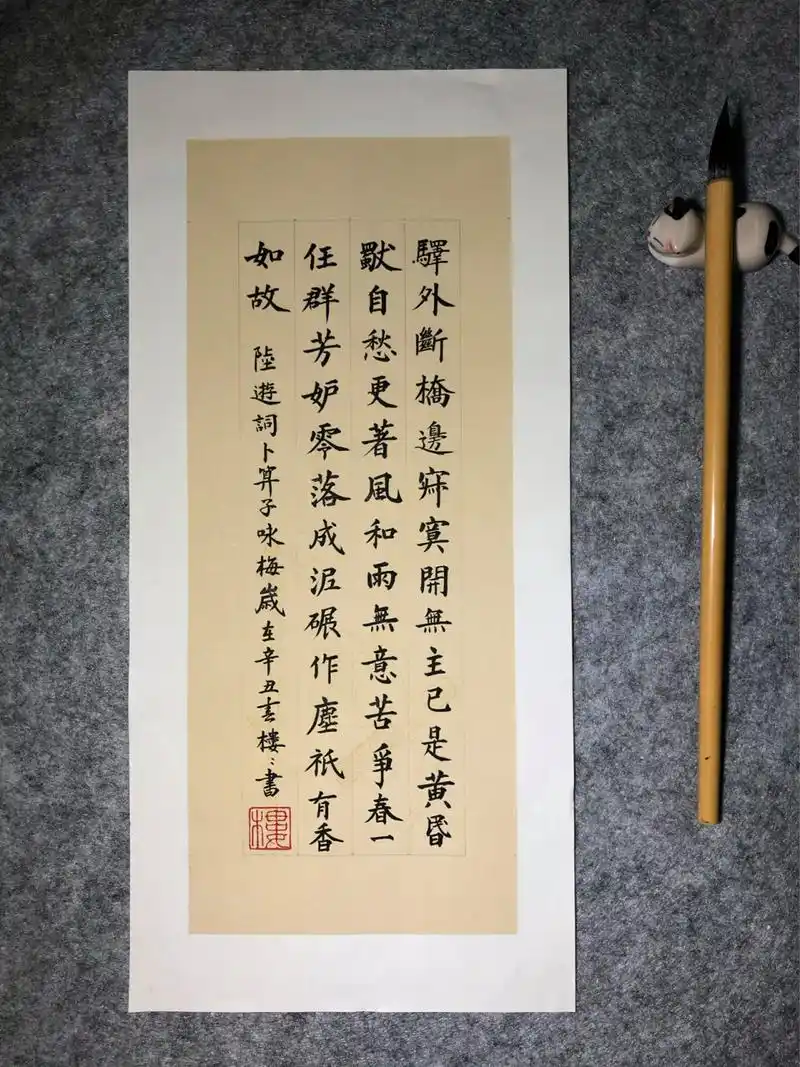 驛外斷橋邊寂寞開無主已是黃昬
獨自愁更著風和雨無意苦爭春一
任群芳妒零落成泥碾作塵祇有香
如故 陸遊詞卜算子咏梅歲在辛丑春樓〻書
樓